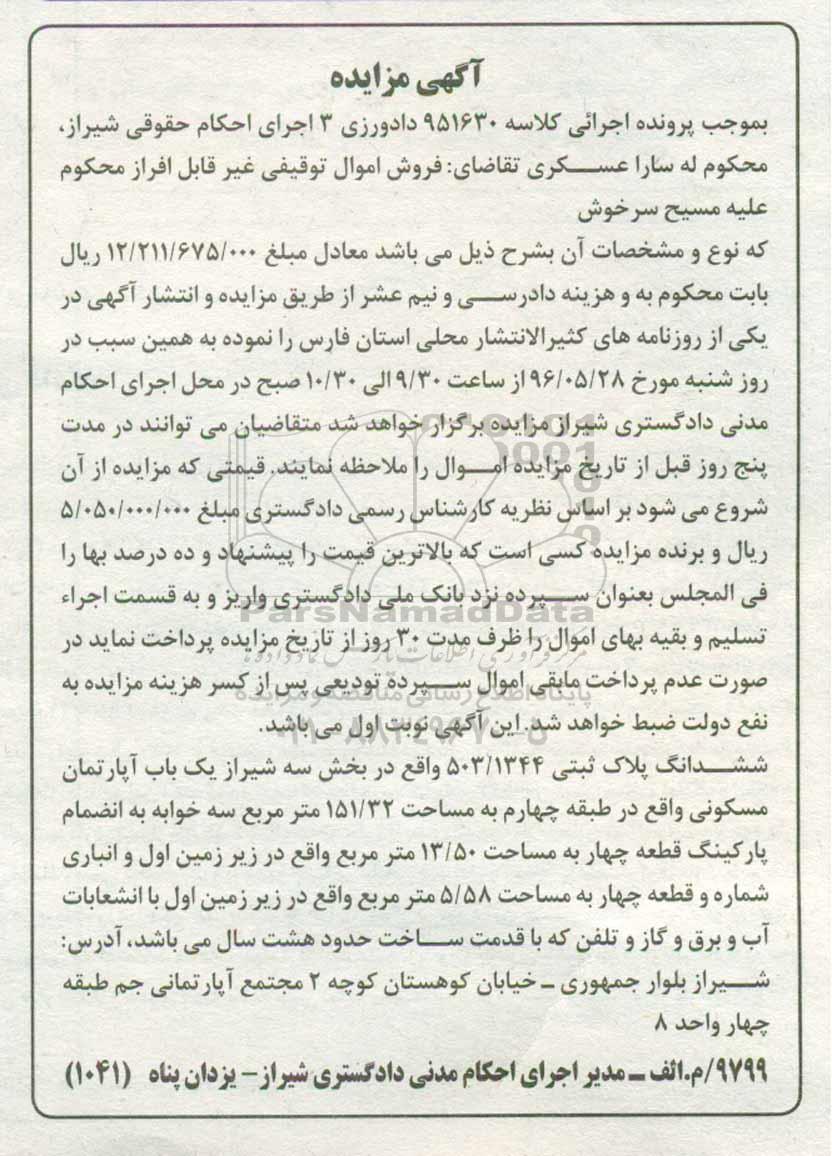 آگهی مزایده
بموجب پرونده اجرائی کلاسه ۹۵۱۶۳۰ دادورزی ۳ اجرای احکام حقوقی شیراز،
محکوم له سارا عسکری تقاضای: فروش اموال توقیفی غیر قابل افراز محکوم
علیه مسیح سرخوش
که نوع و مشخصات آن بشرح ذیل می باشد معادل مبلغ ۱۲/۲۱۱/۶۷۵/۰۰۰ ریال
بابت محکوم به و هزینه دادرسی و نیم عشر از طریق مزایده و انتشار آگهی در
یکی از روزنامه های کثیرالانتشار محلی استان فارس را نموده به همین سبب در
روز شنبه مورخ ۹۶/۰۵/۲۸ از ساعت ۹/۳۰ الی ۱۰/۳۰ صبح در محل اجرای احکام
مدنی دادگستری شیراز مزایده برگزار خواهد شد متقاضیان می توانند در مدت
پنج روز قبل از تاریخ مزایده اموال را ملاحظه نمایند. قیمتی که مزایده از آن
شروع می شود بر اساس نظریه کارشناس رسمی دادگستری مبلغ ۵/۰۵۰/۰۰۰/۰۰۰
ریال و برنده مزایده کسی است که بالاترین قیمت را پیشنهاد و ده درصد بها را
فی المجلس بعنوان سپرده نزد بانک ملی دادگستری واریز و به قسمت اجراء
ParsNamadData
تسلیم و بقیه بهای اموال را ظرف مدت ۳۰ روز از تاریخ مزایده پرداخت نماید در
صورت عدم پرداخت مابقی اموال سپرده تودیعی پس از کسر هزینه مزایده به
نفع دولت ضبط خواهد شد. این آگهی نوبت اول می باشد.
ششدانگ پلاک ثبتی ۵۰۳/۱۳۴۴ واقع در بخش سه شیراز یک باب آپارتمان
مسکونی واقع در طبقه چهارم به مساحت ۱۵۱/۳۲ متر مربع سه خوابه به انضمام
پارکینگ قطعه چهار به مساحت ۱۳/۵۰ متر مربع واقع در زیر زمین اول و انباری
شماره و قطعه چهار به مساحت ۵/۵۸ متر مربع واقع در زیر زمین اول با انشعابات
آب و برق و گاز و تلفن که با قدمت ساخت حدود هشت سال می باشد، آدرس:
شیراز بلوار جمهوری ـ خیابان کوهستان کوچه ۲ مجتمع آپارتمانی جم طبقه
چهار واحد ۸
۹۷۹۹/م.الف ـ مدیر اجرای احکام مدنی دادگستری شیراز- یزدان پناه (۱۰۴۱)